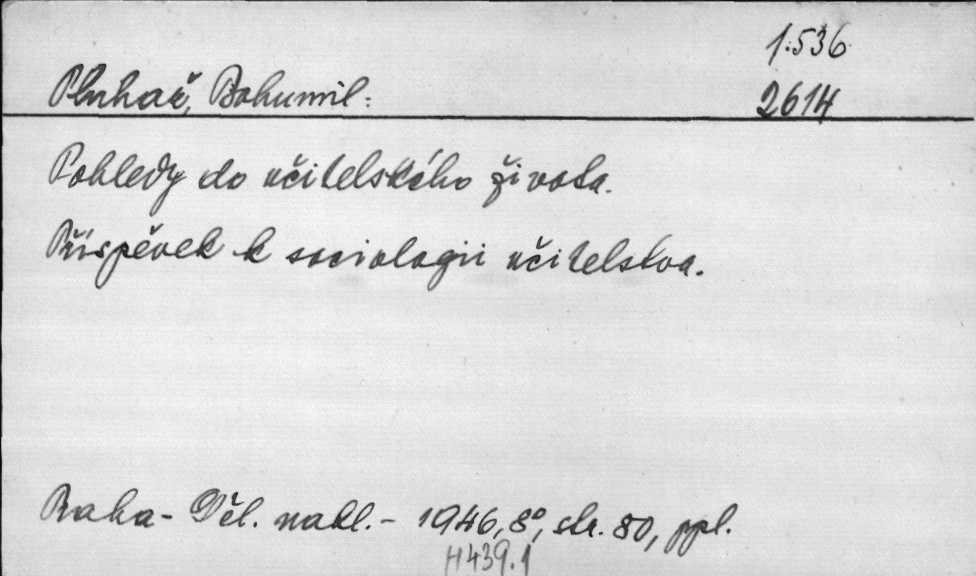 1.536
Pluhař, Bohumil:
2614
Pohledy do učitelského života.
Příspěvek k sociologii učitelstva.
Praha - Děl. nakl. - 1946, 8°, str. 80, ppl.
H439.1